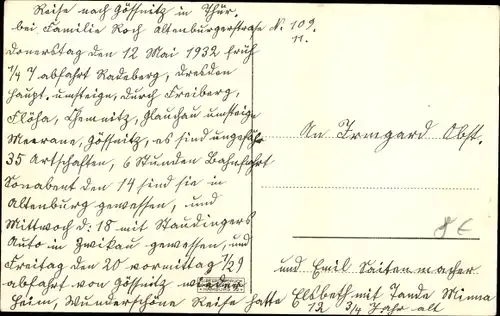 Reise nach Gössnitz in Thür.
bei Familie Koch Altenburgerstrase N. 109.
11.
Donerstag den 12 Mai 1932 früh
1/4 7 abfahrt Radeberg, Dresden
Haupt. umsteige, durch Freiberg,
Flöha, Chemnitz, Glauchau umsteige
Meerane, Gössnitz, es sind ungefähr
35 Artschaften, 6 Stunden Bahnfahrt
Sonabent den 14 sind sie in
Altenburg gewessen, und
Mittwoch d: 18 mit Staudingers
Auto in Zwikau gewessen, und
Freitag den 20 vormittag 1/2 9
abfahrt von Gössnitz wieder
Heim, Wunderschöne Reise hatte Elsbeth mit Tande Minna
12 3/4 Jahr alt
An Irmgard Obst.
8 €
und Emil Saitenmacher